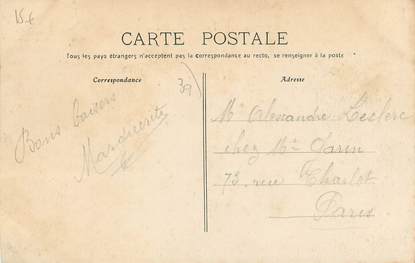 15€
CARTE POSTALE
Tous les pays étrangers n'acceptent pas la correspondance au recto, se renseigner à la poste
Correspondance
Adresse
39
Bons baisers
Marguerite
Mr Alexandre Leclerc
chez Mr Darin
73, rue Charlot
Paris